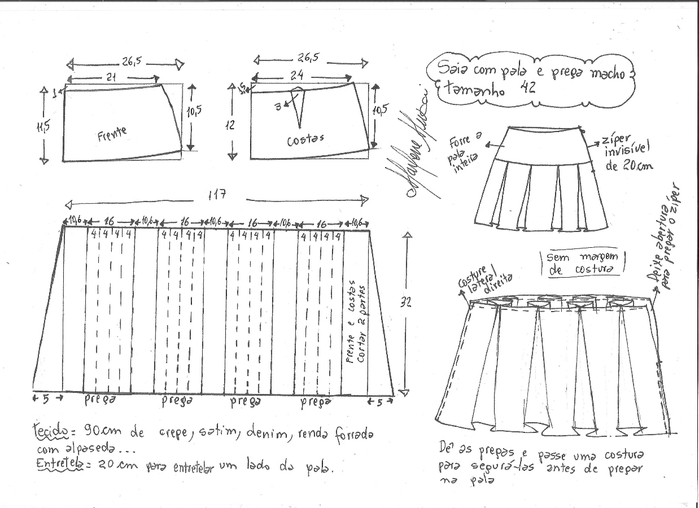 26,5
21
1
11,5
10,5
Frente
26,5
24
1,5
3
12
10,5
costas
Saia com pala e prega macho
tamanho 42
Forre a
pala
inteira
zíper
invisível
de 20cm
117
10,6 16 10,6 16 10,6 16 10,6 16 10,6
4 4 4 4 4 4 4 4 4 4 4 4 4 4 4 4
Frente e costas
Cortar 2 partes
32
5 prega prega prega prega 5
Sem margem
de costura
Costure
lateral
direita
deixe abertura
para pregar o zíper
Tecido = 90cm de crepe, satim, denim, renda forrada
com alpaseda...
Entretela = 20 cm para entretelar um lado da pala.
Dê as pregas e passe uma costura
para segurá-las antes de pregar
na pala